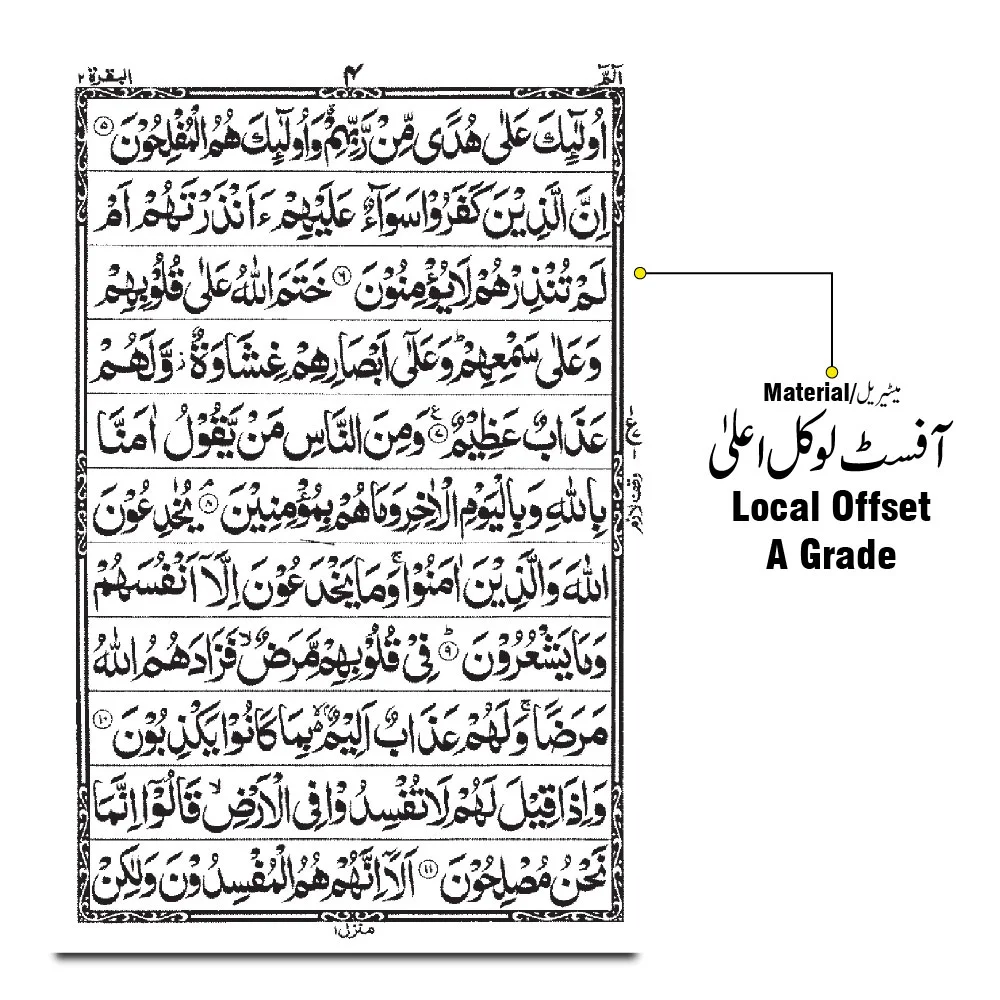 الٓمّٓ ۴ البقرة ۲
اُولٰٓئِكَ عَلٰى هُدًى مِّنْ رَّبِّهِمْ ۗ وَاُولٰٓئِكَ هُمُ الْمُفْلِحُوْنَ ۝۵
اِنَّ الَّذِيْنَ كَفَرُوْا سَوَآءٌ عَلَيْهِمْ ءَاَنْذَرْتَهُمْ اَمْ
لَمْ تُنْذِرْهُمْ لَا يُؤْمِنُوْنَ ۝۶ خَتَمَ اللّٰهُ عَلٰى قُلُوْبِهِمْ
وَعَلٰى سَمْعِهِمْ ؕ وَعَلٰٓى اَبْصَارِهِمْ غِشَاوَةٌ ؗ وَّلَهُمْ
عَذَابٌ عَظِيْمٌ ۝۷ وَمِنَ النَّاسِ مَنْ يَّقُوْلُ اٰمَنَّا
بِاللّٰهِ وَبِالْيَوْمِ الْاٰخِرِ وَمَا هُمْ بِمُؤْمِنِيْنَ ۝۸ يُخٰدِعُوْنَ
اللّٰهَ وَالَّذِيْنَ اٰمَنُوْا ۚ وَمَا يَخْدَعُوْنَ اِلَّاۤ اَنْفُسَهُمْ
وَمَا يَشْعُرُوْنَ ۝۹ فِىْ قُلُوْبِهِمْ مَّرَضٌ ۙ فَزَادَهُمُ اللّٰهُ
مَرَضًا ۚ وَلَهُمْ عَذَابٌ اَلِيْمٌ ۢ ۙ بِمَا كَانُوْا يَكْذِبُوْنَ ۝۱۰
وَاِذَا قِيْلَ لَهُمْ لَا تُفْسِدُوْا فِى الْاَرْضِ ۙ قَالُوْٓا اِنَّمَا
نَحْنُ مُصْلِحُوْنَ ۝۱۱ اَلَاۤ اِنَّهُمْ هُمُ الْمُفْسِدُوْنَ وَلٰكِنْ
منزل ۱
وقف لازم
Material/میٹیریل
آفسٹ لوکل اعلیٰ
Local Offset
A Grade